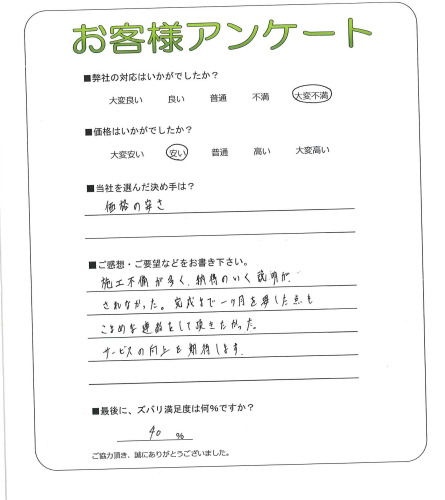 お客様アンケート
■弊社の対応はいかがでしたか？
大変良い 良い 普通 不満 大変不満
■価格はいかがでしたか？
大変安い 安い 普通 高い 大変高い
■当社を選んだ決め手は？
価格の安さ
■ご感想・ご要望などをお書き下さい。
施工不備が多く、納得のいく説明が
されなかった。完成まで一ヶ月を要した点も
こまめな連絡をして頂きたかった。
サービスの向上を期待します。
■最後に、ズバリ満足度は何％ですか？
40 ％
ご協力頂き、誠にありがとうございました。